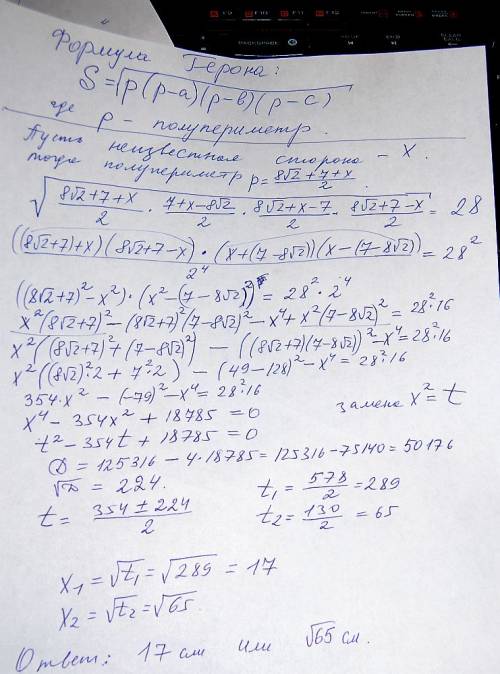 Формула Герона:
S=√(p(p-a)(p-в)(p-c))
где p - полупериметр.
Пусть неизвестная сторона - x.
тогда полупериметр p = (8√2+7+x)/2
√((8√2+7+x)/2 · (7+x-8√2)/2 · (8√2+x-7)/2 · (8√2+7-x)/2) = 28
((8√2+7)+x)(8√2+7-x)·(x+(7-8√2))(x-(7-8√2))/2⁴ = 28²
((8√2+7)²-x²)·(x²-(7-8√2)²) = 28²·2⁴
x²(8√2+7)²-(8√2+7)²(7-8√2)²-x⁴+x²(7-8√2)² = 28²·16
x²((8√2+7)²+(7-8√2)²) - ((8√2+7)(7-8√2))²-x⁴=28²·16
x²((8√2)²·2+7²·2) - (49-128)²-x⁴ = 28²·16
354·x² - (-79)²-x⁴ = 28²·16
x⁴ - 354x² + 18785 = 0 замена x² = t
t² - 354t + 18785 = 0
D = 125316 - 4·18785 = 125316 - 75140 = 50176
√D = 224. t₁ = 578/2 = 289
t = (354 ± 224)/2 t₂ = 130/2 = 65
x₁ = √t₁ = √289 = 17
x₂ = √t₂ = √65.
Ответ: 17 см или √65 см.